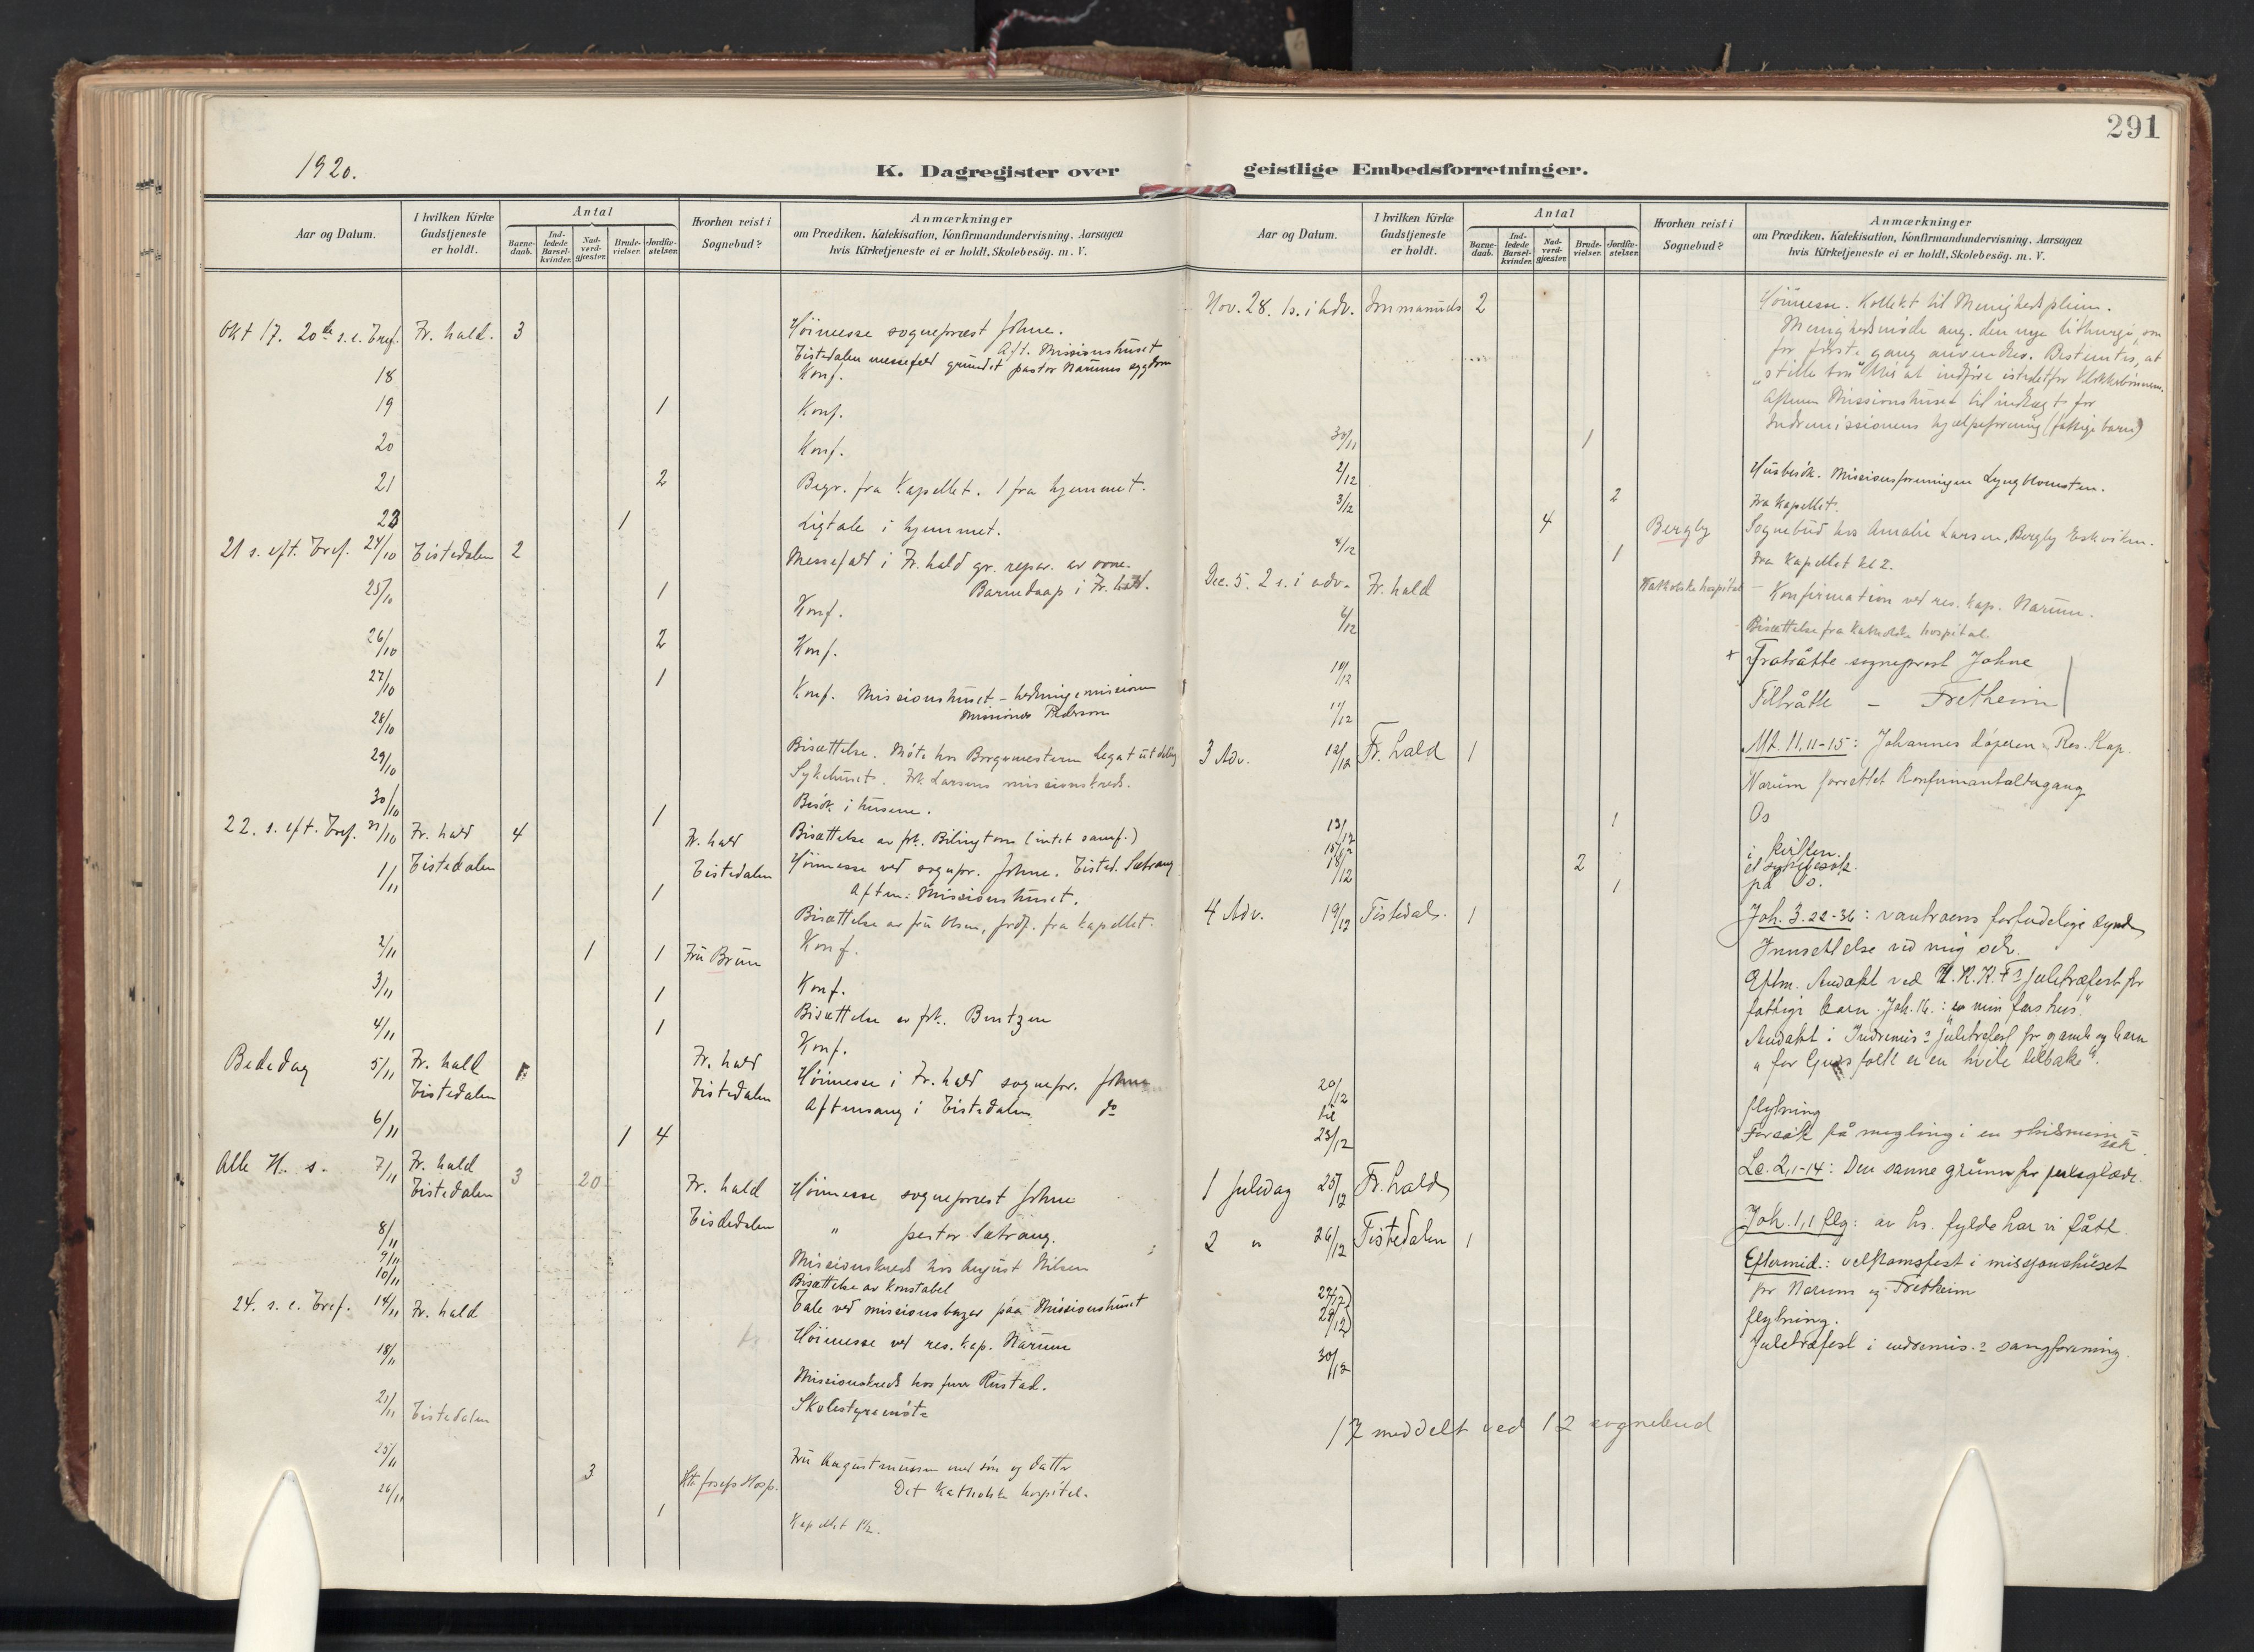 1920.
K. Dagregister over
Aar og Datum.
I hvilken Kirke Gudstjeneste er holdt.
Antal
Barne-daab.
Ind-ledede Barsel-kvinder.
Nad-verd-gjester.
Brude-vielser.
Jordfæ-stelser.
Hvorhen reist i Sognebud?
Anmærkninger
om Prædiken, Katekisation, Konfirmandundervisning, Aarsagen
hvis Kirketjeneste ei er holdt, Skolebesög. m. V.
Okt 17. 20de s. e. Tref. Fr. hald. 3 Høimesse sogneprest Johne.
Aft. Missionshuset
Tistedalen messefald grundet pastor Narums sygdom
18 Konf.
19 1 Konf.
20 Konf.
21 2 Begr. fra Kapellet. 1 fra hjemmet.
23 1 Ligtale i hjemmet.
21 s. eft. Tref. 24/10 Tistedalen 2 Messefald i Fr. hald gr. repar. av ovne.
Barnedaap i Fr. hald.
25/10 1 Konf.
26/10 2 Konf.
27/10 1 Konf. Missionshuset - hedningemissionen
Missionær Pederson
28/10
29/10 Bisættelse. Møte hos Borgermesteren Legatutdeling
Sykehuset. Frk Larsens missionskreds.
30/10 1 Besök i husene.
22. s. eft. Tref. 31/10 Fr. hald 4 Fr. hald Bisættelse av frk. Bilington (intet samf.)
Tistedalen Tistedalen Høimesse ved sognepr. Johne. Tisted. Sætrang
1/11 1 Aften: Missionshuset.
Bisættelse av fru Olsen, jordf. fra kapellet.
2/11 1 1 Fru Brun Konf.
3/11 1 Konf.
4/11 1 Bisættelse av frk. Bentzen
Konf.
Bededag 5/11 Fr. hald Fr. hald Høimesse i Fr. hald sognepr. Johne
Tistedalen Tistedalen Aftensang i Tistedalen do
6/11 1 4
Alle H. s. 7/11 Fr. hald 3 20 Fr. hald Høimesse sogneprest Johne
Tistedalen Tistedalen " pastor Sætrang.
8/11 Missionskreds hos August Nilsen
9/11 Bisættelse av konstabel
10/11 Tale ved missionsbazar paa Missionshuset
24. s. e. Tref. 14/11 Fr. hald Høimesse ved res. kap. Narum
18/11 Missionskreds hos fru Rustad.
Skolestyremøte
21/11 Tistedalen
25/11 3 St. Josefs Hosp. Fru Augustinussen med søn og datter
Det katholske hospital.
26/11 1 Kapellet 1½.
291
geistlige Embedsforretninger.
Aar og Datum.
I hvilken Kirke Gudstjeneste er holdt.
Antal
Barne-daab.
Ind-ledede Barsel-kvinder.
Nad-verd-gjester.
Brude-vielser.
Jordfæ-stelser.
Hvorhen reist i Sognebud?
Anmærkninger
om Prædiken, Katekisation, Konfirmandundervisning, Aarsagen
hvis Kirketjeneste ei er holdt, Skolebesög. m. V.
Nov. 28. 1s. i adv. Immanuels 2 Høimesse. Kollekt til Menighetspleien.
Menighedsmøde ang. den nye lithurgi, som
for første gang anvendes. Bestemtes, at
"stille bön" blir at indføre istedetfor Klokkerbönnen.
Aftenen Missionshuset til indtægt for
Indremissionens hjælpeforening (fattige barn)
30/11 1
2/12 Husbesök. Missionsforeningen Lyngblomsten.
3/12 2 Fra kapellet.
4 Bergby Sognebud hos Amalie Larsen, Bergby Eskviken.
4/12 1 Fra kapellet kl 2.
Dec. 5. 2 s. i adv. Fr. hald Katholske hospital - Konfirmation ved res. kap. Narum.
6/12 Bisættelse fra Katholske hospital.
10/12 + Fratrådte sogneprest Johne
11/12 Tiltrådte - Fretheim
3 Adv. 12/12 Fr. hald 1 Mt. 11,11-15: Johannes døperen. Res. Kap.
Narum forrettet Konfirmantaltergang
13/12 1 Os
15/12 i kirken.
et sykebesøk.
18/12 2 1 på Os.
4 Adv. 19/12 Tistedal. 1 Joh. 3.22-36: vantroens forfærdelige synd
Innsettelse ved mig selv.
Eftm. Andakt ved K.R.K.F's juletræfest for
fattige barn. Joh. 14.: "min fars hus".
Andakt i Indremis's juletrefest for gamle og barn
"for Guds folk er en hvile tilbake".
20/12 til 23/12 flytning
Forsøk på megling i en skilsmisse-sak.
1 Juledag 25/12 Fr. hald Lc. 2,1-14: Den sanne grunn for juleglæde.
2 " 26/12 Tistedalen 1 Joh. 1,1 flg: av hs. fylde har vi fått
Eftermid.: velkomstfest i missjonshuset
for Narum og Fretheim
27/12
29/12 flytning.
30/12 Juletræfest i indremis.s sangforening.
17 meddelt ved 12 sognebud